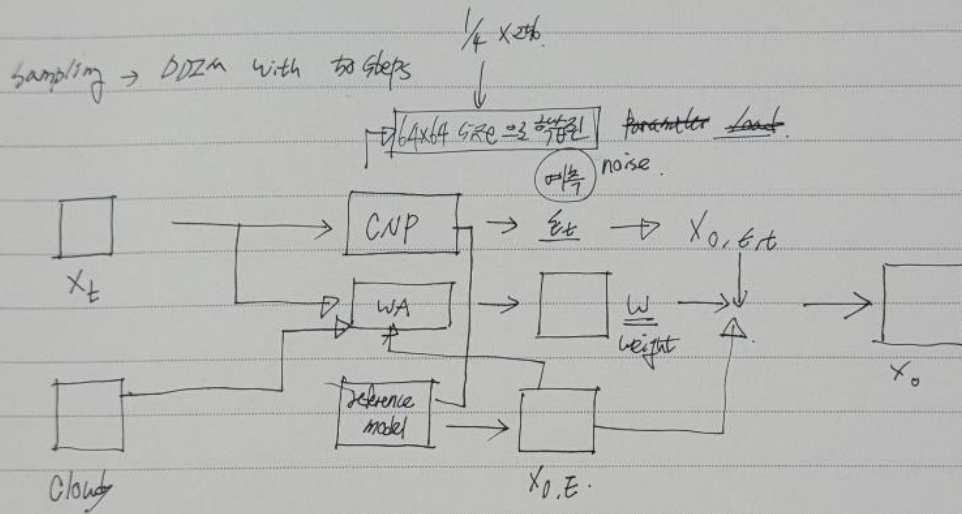 1/4 ×
Sampling → DDIM with 50 steps
64x64 size 으로 학습된 Parameter Load.
예측 noise.
CNP → εt → X0,ε,t
Xt
WA
W
weight
X0
reference
model
X0,E.
Cloudy